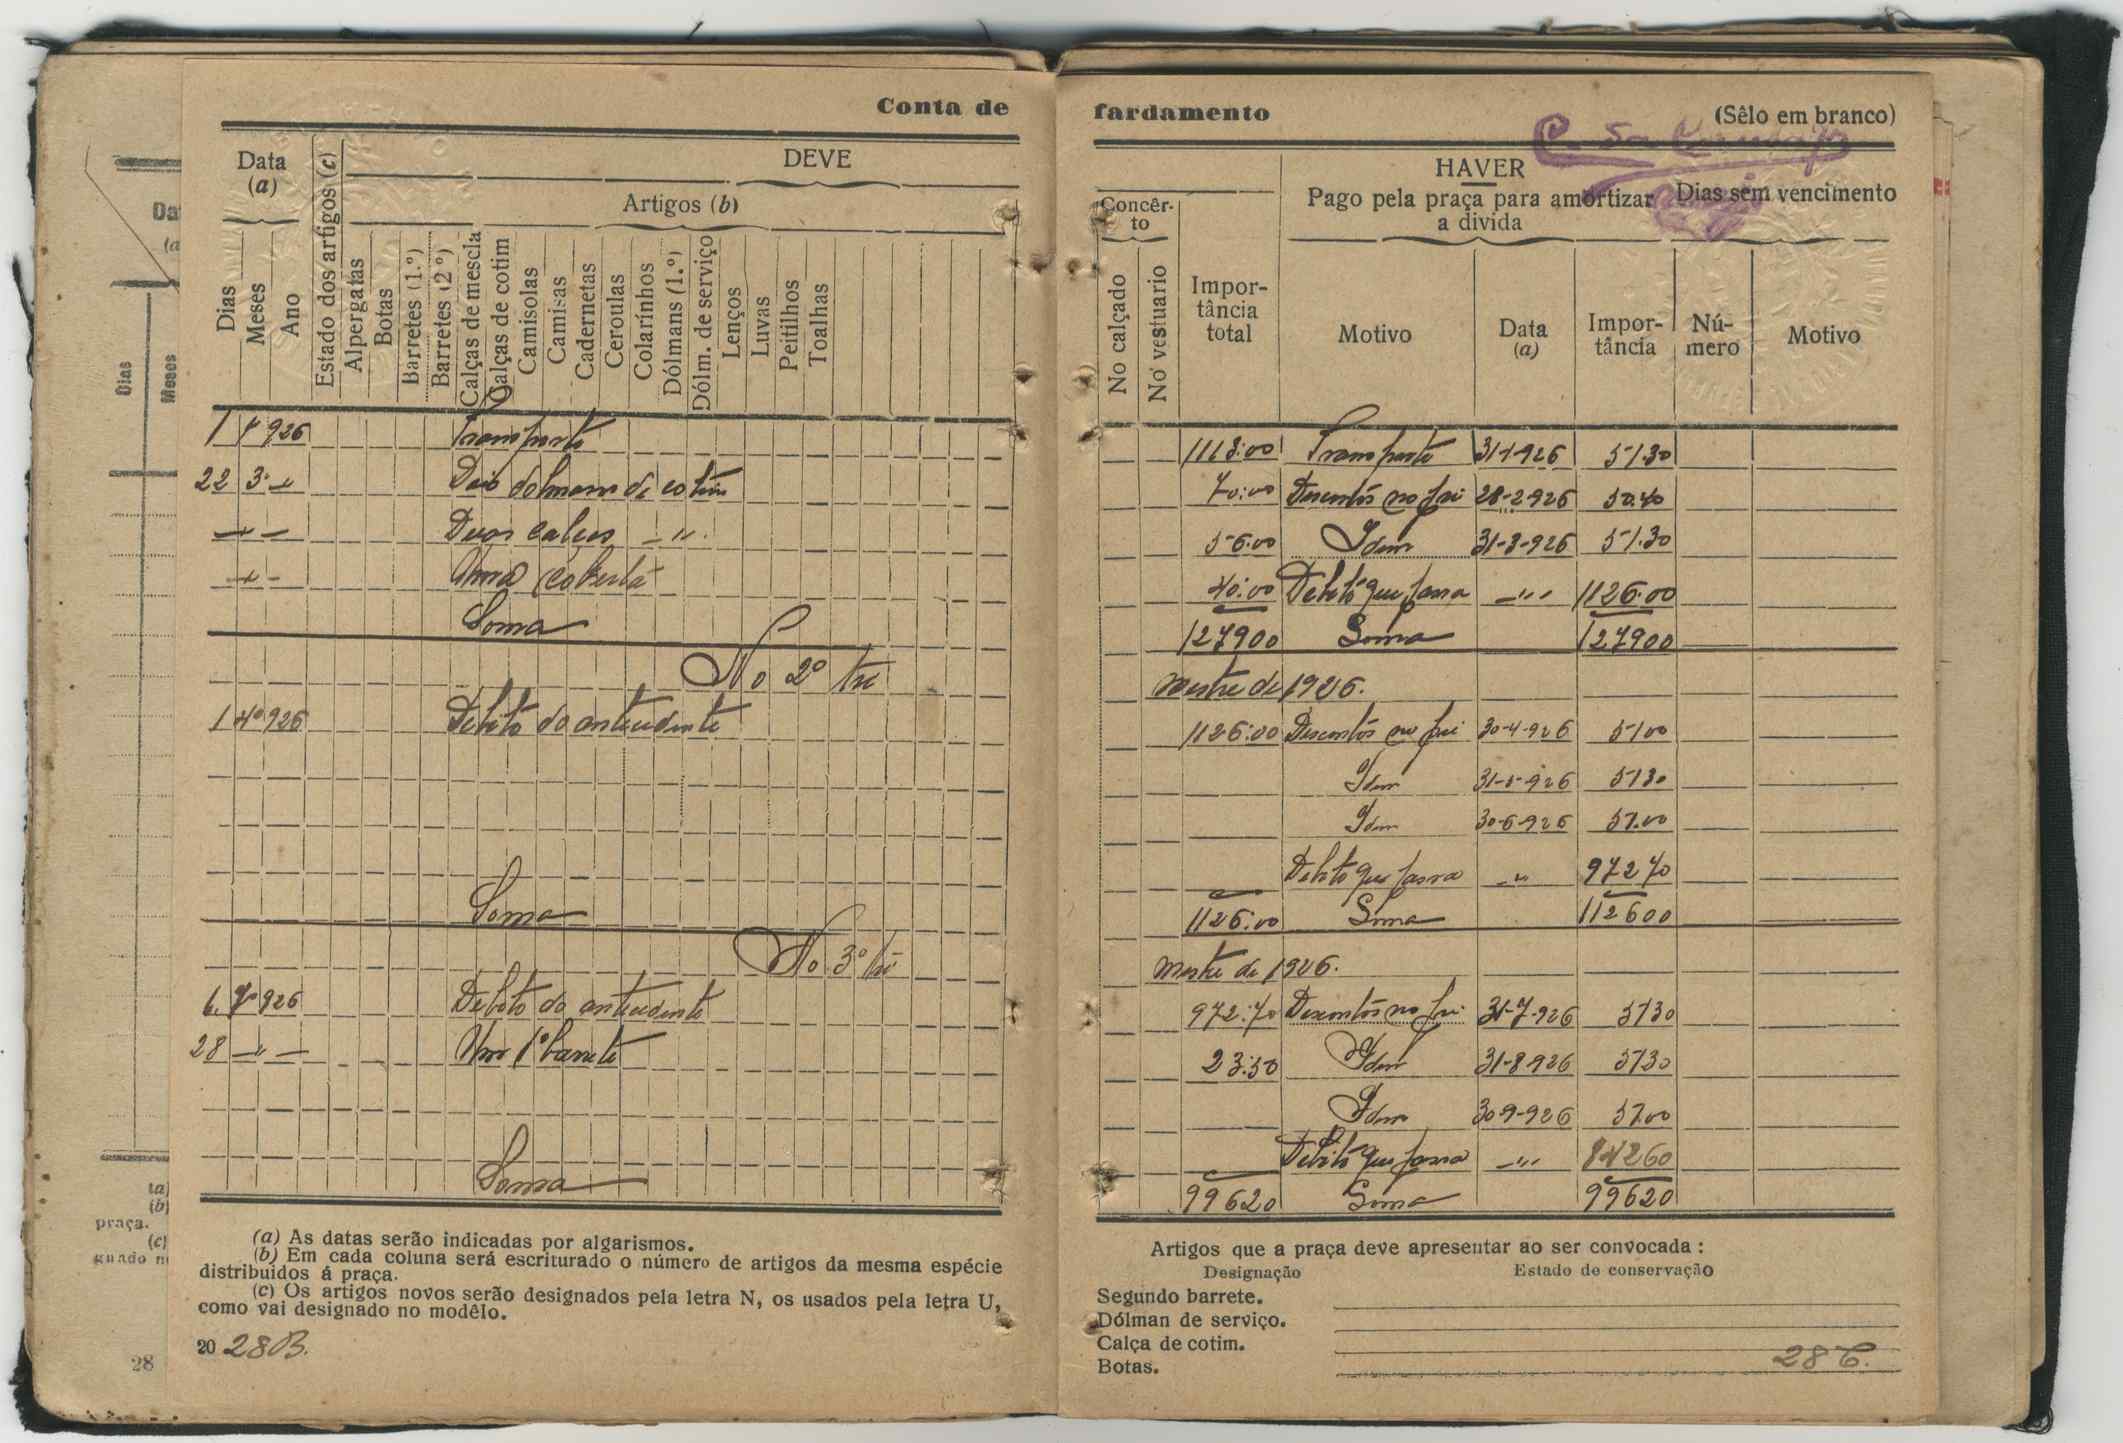 Conta de fardamento
(Sêlo em branco)
Data
(a)
DEVE
Artigos (b)
Dias
Meses
Ano
Estado dos artigos (c)
Alpergatas
Botas
Barretes (1.º)
Barretes (2 º)
Calças de mescla
Calças de cotim
Camisolas
Camisas
Cadernetas
Ceroulas
Colarinhos
Dólmans (1.º)
Dólm. de serviço
Lenços
Luvas
Peitilhos
Toalhas
1 1º 926 Transporte
22 3º " Dois dolmans de cotim
" Duas calças "
" Uma coberta
Soma
No 2º tri
1 4º 926 Debito do antecedente
Soma
No 3º tri
6. 7º 926 Debito do antecedente
28 " Um 1º barrete
Soma
(a) As datas serão indicadas por algarismos.
(b) Em cada coluna será escriturado o número de artigos da mesma espécie
distribuidos á praça.
(c) Os artigos novos serão designados pela letra N, os usados pela letra U,
como vai designado no modêlo.
20 28B.
HAVER
Concêr-
to
Pago pela praça para amortizar
a divida
Dias sem vencimento
No calçado
No vestuario
Impor-
tância
total
Motivo
Data
(a)
Impor-
tância
Nú-
mero
Motivo
1113:00 Transporte 31-1-926 51.30
70:00 Descontos no pri 28-2-926 50.40
56:00 Idem 31-3-926 51.30
40:00 Debito que passa " 1126:00
127900 Soma 127900
mestre de 1926.
1126:00 Descontos no pri 30-4-926 5100
Idem 31-5-926 5130
Idem 30-6-926 51.00
Debito que passa " 97270
1126:00 Soma 112600
mestre de 1926.
972:70 Descontos no pri 31-7-926 5130
23:50 Idem 31-8-926 5130
Idem 30-9-926 51.00
Debito que passa " 84260
99620 Soma 99620
Artigos que a praça deve apresentar ao ser convocada :
Designação
Estado de conservação
Segundo barrete.
Dólman de serviço.
Calça de cotim.
Botas.
28 C.
Da
(a
Dias
Meses
(a)
(b)
praça.
(c)
guado n
28